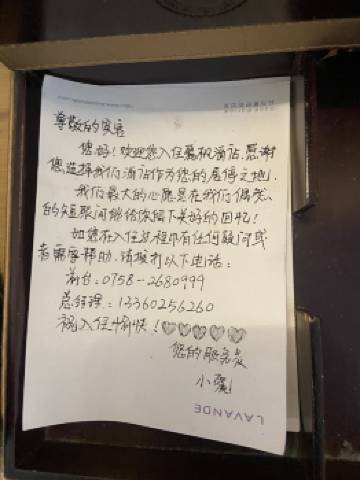 尊敬的宾客
您好！欢迎您入住麗枫酒店，感谢
您选择我们酒店作为您的居停之地，
我们最大的心愿是在我们偶然
的短聚间能给您留下美好的回忆！
如您在入住过程中有任何疑问或
者需要帮助，请拨打以下电话：
前台：0758-2680999
总经理：13360256260
祝入住愉快！
您的服务员
小骊
LAVANDE